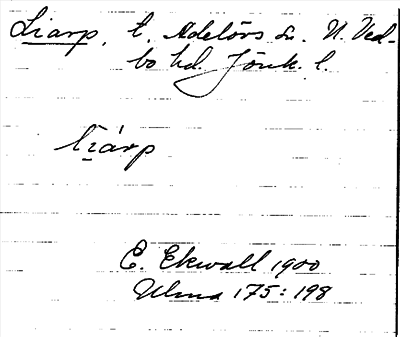 Liarp, t. Adelövs sn. N. Ved-
bo hd. Jönk. l.
liárp
E. Ekwall 1900
Ulma 175:198